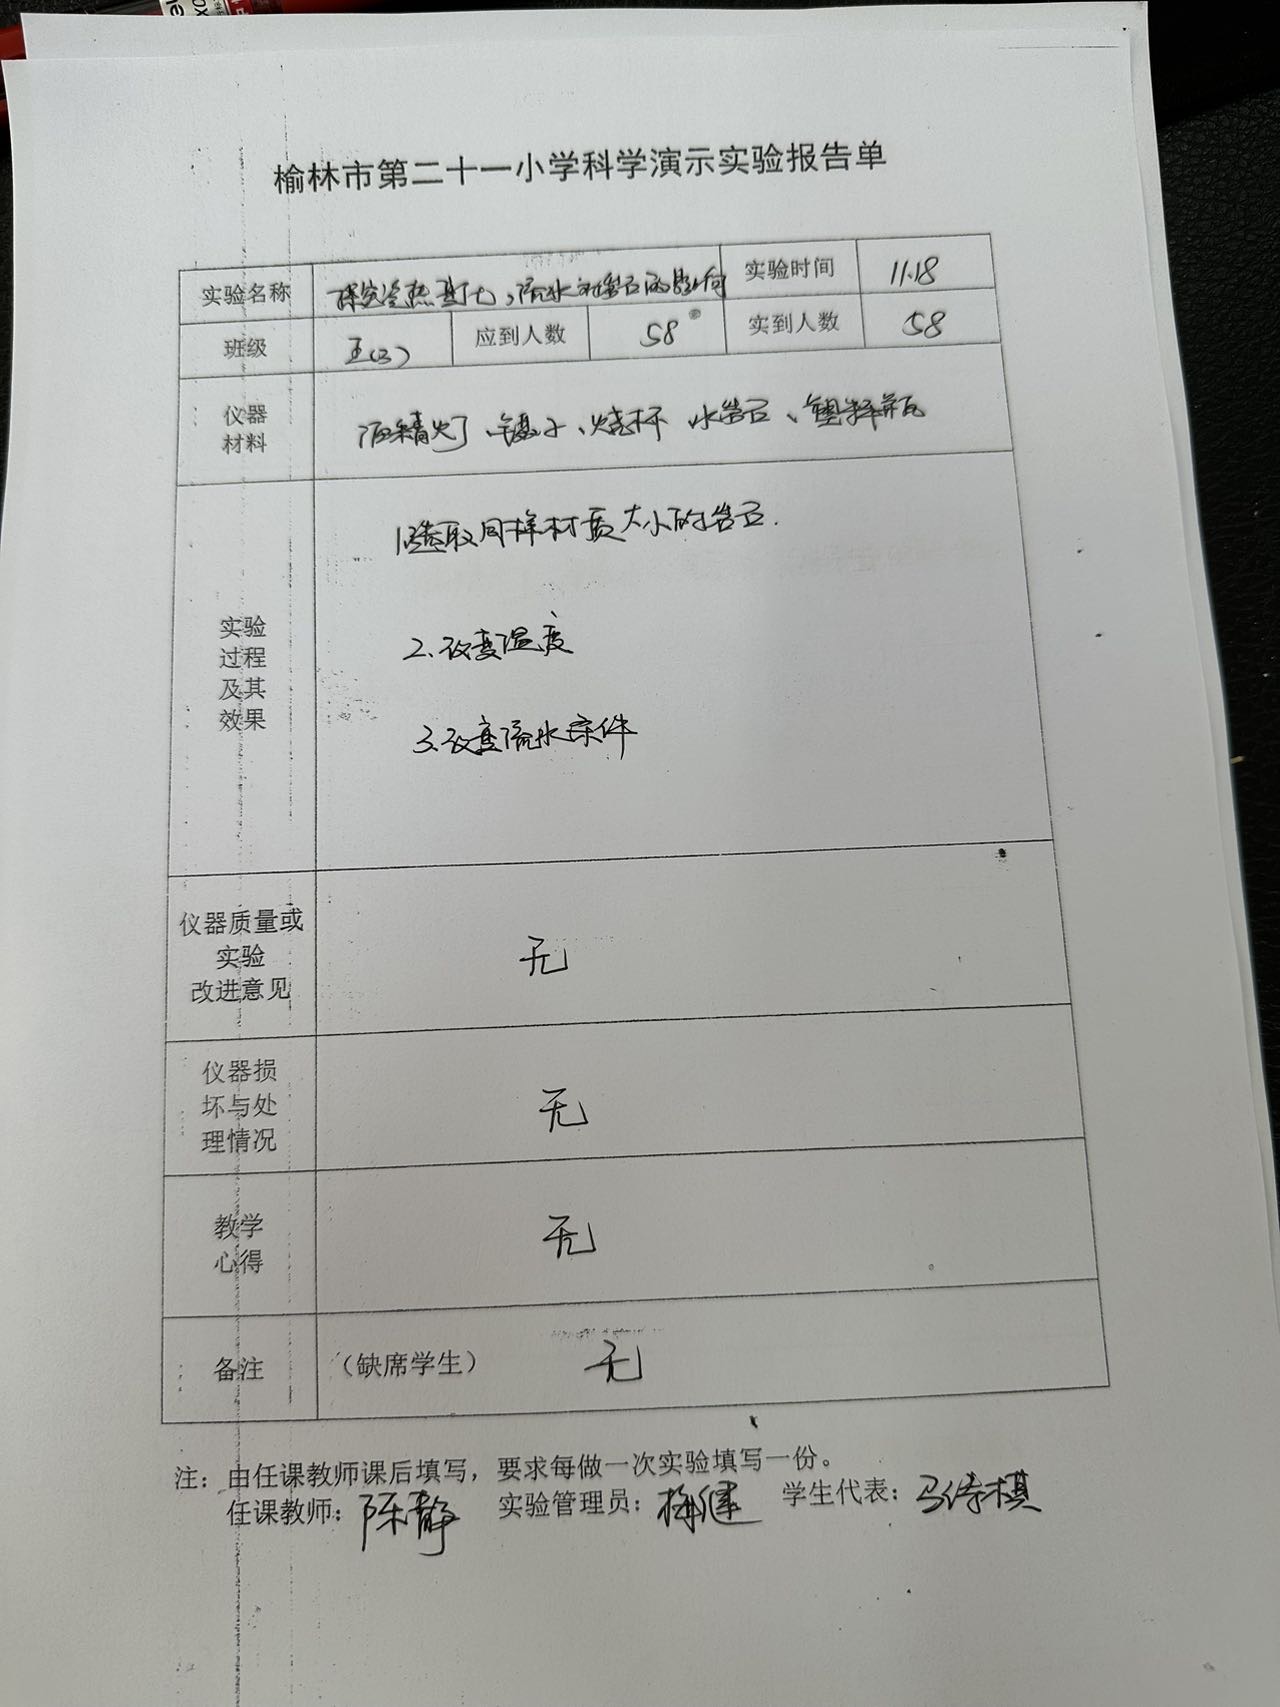 榆林市第二十一小学科学演示实验报告单
实验名称 探究冷热变化、流水对岩石的影响 实验时间 11.18
班级 五(3) 应到人数 58 实到人数 58
仪器
材料
酒精灯、镊子、烧杯 水 岩石、塑料瓶
1.选取同样材质大小的岩石.
实验
过程
及其
效果
2.改变温度
3.改变流水条件
仪器质量或
实验
改进意见
无
仪器损
坏与处
理情况
无
教学
心得
无
备注 (缺席学生) 无
注：由任课教师课后填写，要求每做一次实验填写一份。
任课教师：陈静 实验管理员： 学生代表：